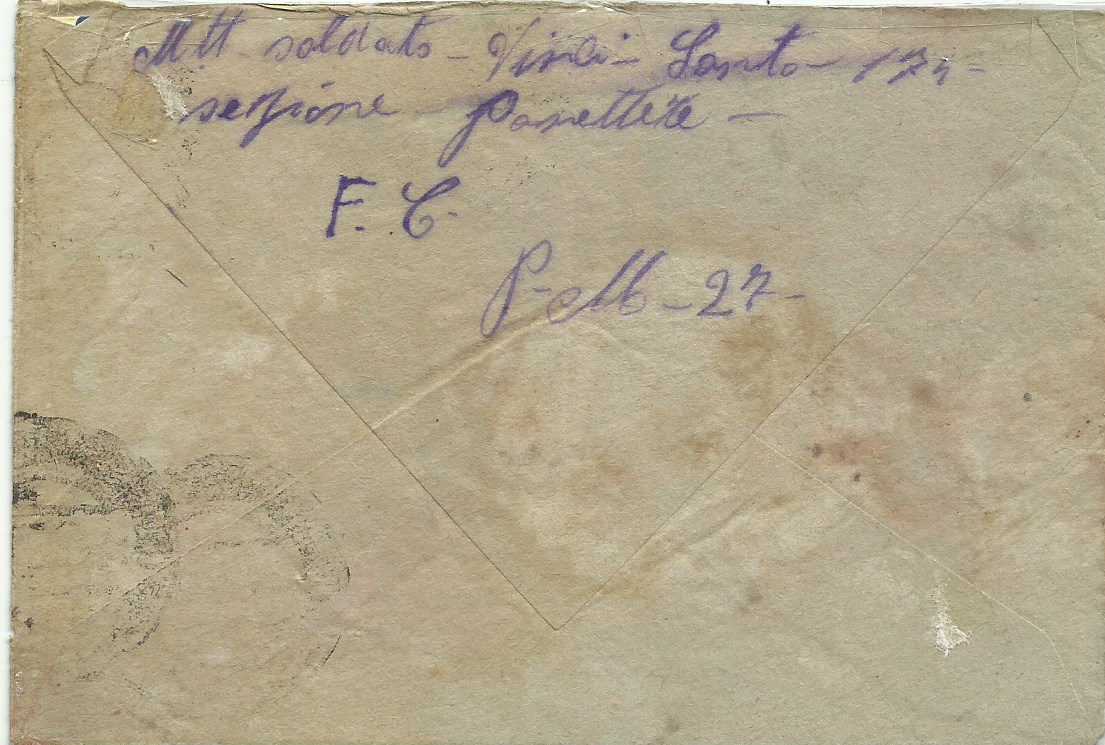 Mtt soldato - Vinci - Santo - 174 -
sezione - Panettere -
F. C.
P - M - 27 -